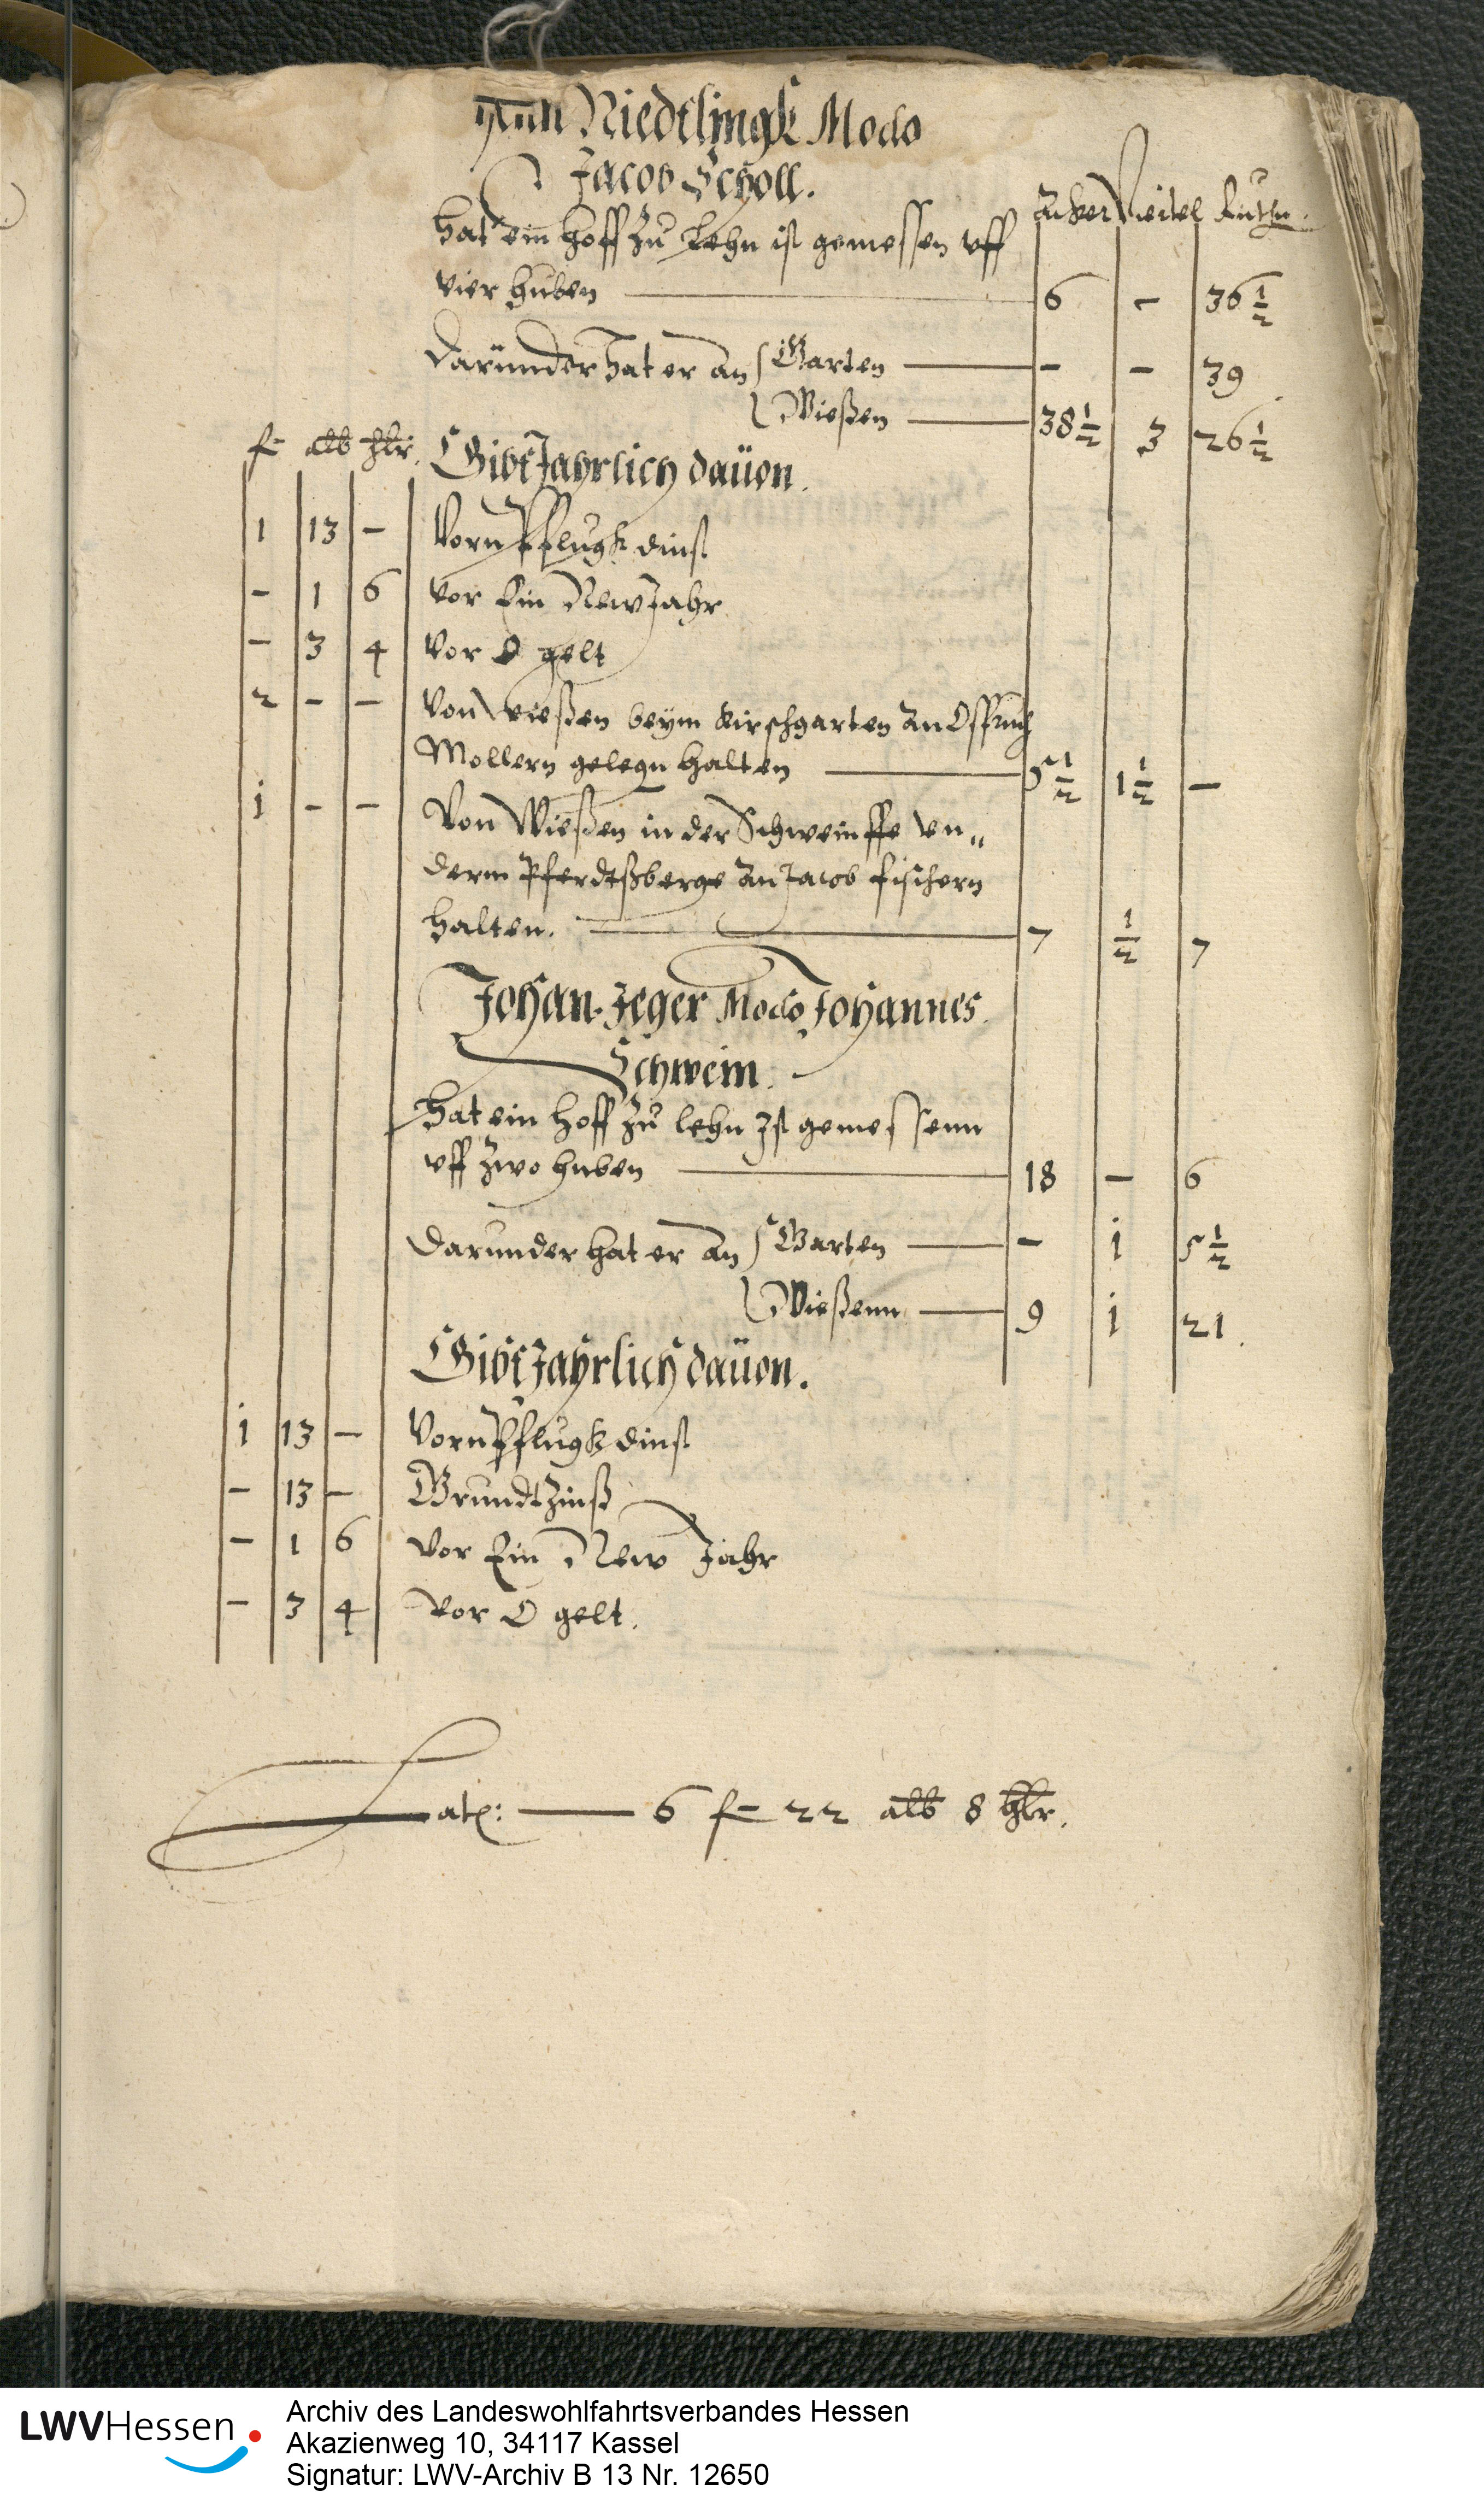 Niedtlingk Modo
Jacob Scholl.
Acker Viertel Ruthn.
hat ein hoff zu Lehn ist gemessen vff
vier huben — 6 - 36 1/2
Darunder hat er an Garten — - - 39
Wießen — 38 1/2 3 26 1/2
f alb hlr. Gibt Jahrlich dauon.
1 13 - Vorn Pflugk dinst
- 1 6 vor Ein New Jahr
- 3 4 Vor O gelt
2 - - Von Wießen beÿm Kirschgarten an
Mollern gelegn halten — 5 1/2 1 1/2 -
1 - - Von Wießen in der Schweinffe vn„
derm Pferdtßberge an Jacob fischern
halten. — 7 1/2 7
Johan Jeger Modo Johannes
Schwein.
hat ein hoff zu lehn Ist gemessenn
vff zwo huben — 18 - 6
Darunder hat er an Garten — - 1 5 1/2
Wießenn — 9 1 21.
Gibt Jahrlich dauon.
1 13 - Vorn Pflugk dinst
- 13 - Grundtzinß
- 1 6 vor Ein New Jahr
- 3 4 vor O gelt.
Lat: — 6 f 22 alb 8 hlr.
LWVHessen
Archiv des Landeswohlfahrtsverbandes Hessen
Akazienweg 10, 34117 Kassel
Signatur: LWV-Archiv B 13 Nr. 12650